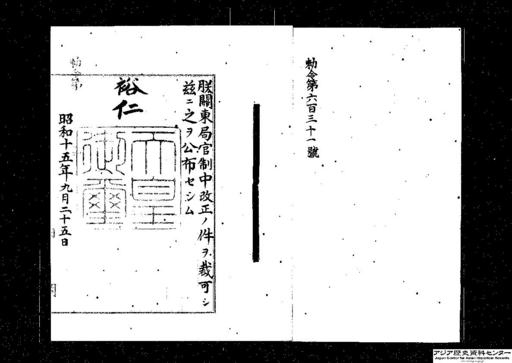 勅令第六百三十一號
朕關東局官制中改正ノ件ヲ裁可シ
茲ニ之ヲ公布セシム
裕仁
天皇
御璽
昭和十五年九月二十五日
勅令第
アジア歴史資料センター
Japan Center for Asian Historical Records